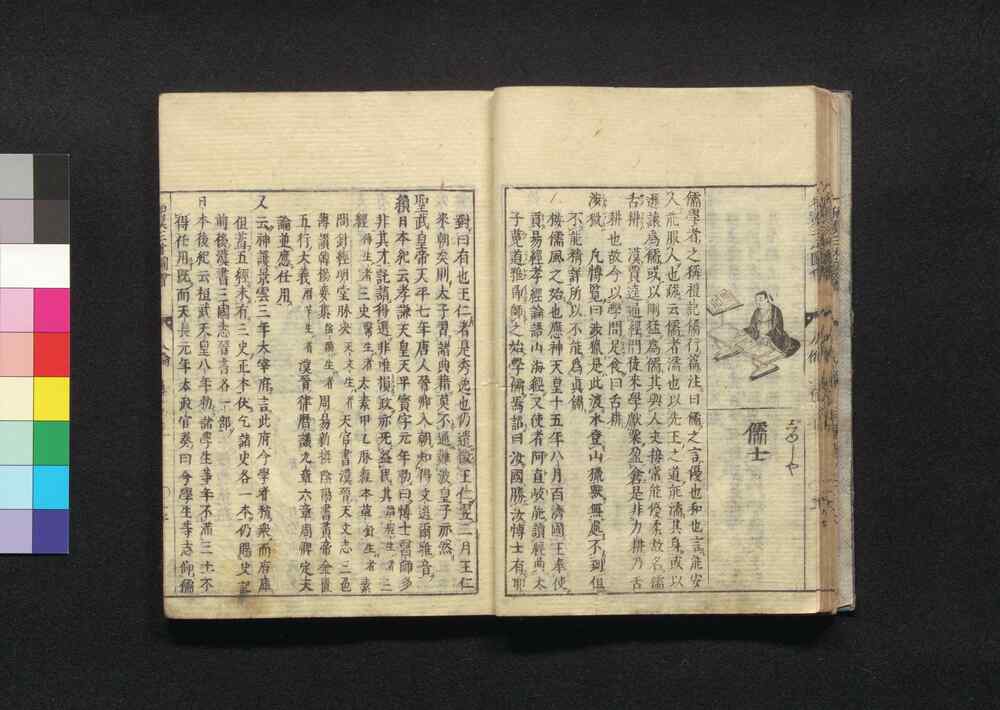 儒士
儒學者之稱禮記儒行篇注曰儒之言優也和也言能安
人能服人也疏云儒者濡也以先王之道能濡其身或以
遜讓爲儒或以剛猛爲儒其與人交接常能優柔故名儒
舌耕 漢賈逵通經門徒來學獻粟盈倉是非力耕乃舌
耕也故今以學問足食曰舌耕
漁獵 凡博覽曰漁獵是此渡水登山獵獸無處不到但
不能精詳所以不能爲貞儒
按儒風之始也應神天皇十五年八月百濟國王奉使
貢易經孝經論語山海經又使者阿直岐能讀經典太
子菟道雅郎師之始學儒焉詔曰汝國勝汝博士有耶
對曰有也王仁者是秀也仍遣徵王仁翌二月王仁
來朝矣則太子習諸典籍莫不通難波皇子亦然
聖武皇帝天平七年唐人晉卿入朝和得文選爾雅音
續日本紀云孝謙天皇天平寶字元年勅曰博士醫師多
非其才託請得選非唯損政亦死益民其
經生者三史醫生者太素甲乙脉經本草針生者素
問針經明堂脉決天文生者天官書漢晉天文志三色
簿讃韓楊要集陰陽生者周易新撰陰陽書黃帝金匱
五行大義曆生者漢晉律曆議九章六章周髀定天
論並應任用
又云神護景雲三年大宰府言此府今學者稍衆而府庫
但蓄五經未有三史正本伏乞諸史各一本仍賜史記
前後漢書三國志晉書各一部
日本後紀云桓武天皇八年勅諸學生等年不滿三十不
得任用既而天長元年太政官奏曰今學生等志仰儒